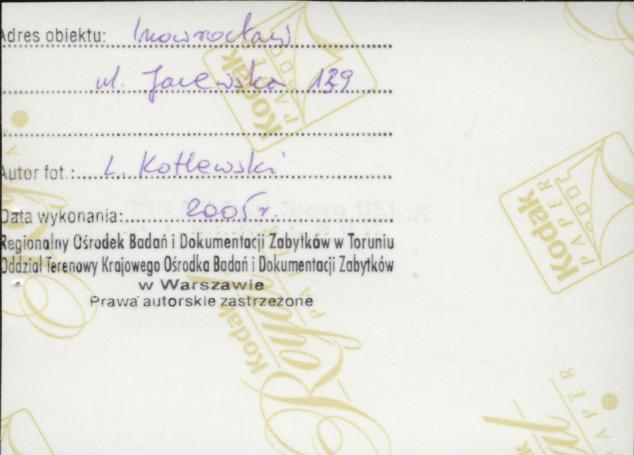 Adres obiektu: Inowrocław
ul. Jacewska 129
Autor fot.: L. Kotlewski
Data wykonania: 2005 r.
Regionalny Ośrodek Badań i Dokumentacji Zabytków w Toruniu
Oddział Terenowy Krajowego Ośrodka Badań i Dokumentacji Zabytków
w Warszawie
Prawa autorskie zastrzeżone
Kodak
PAPER
Kodak
PAPER
Kodak
Royal
PAPER
Kodak